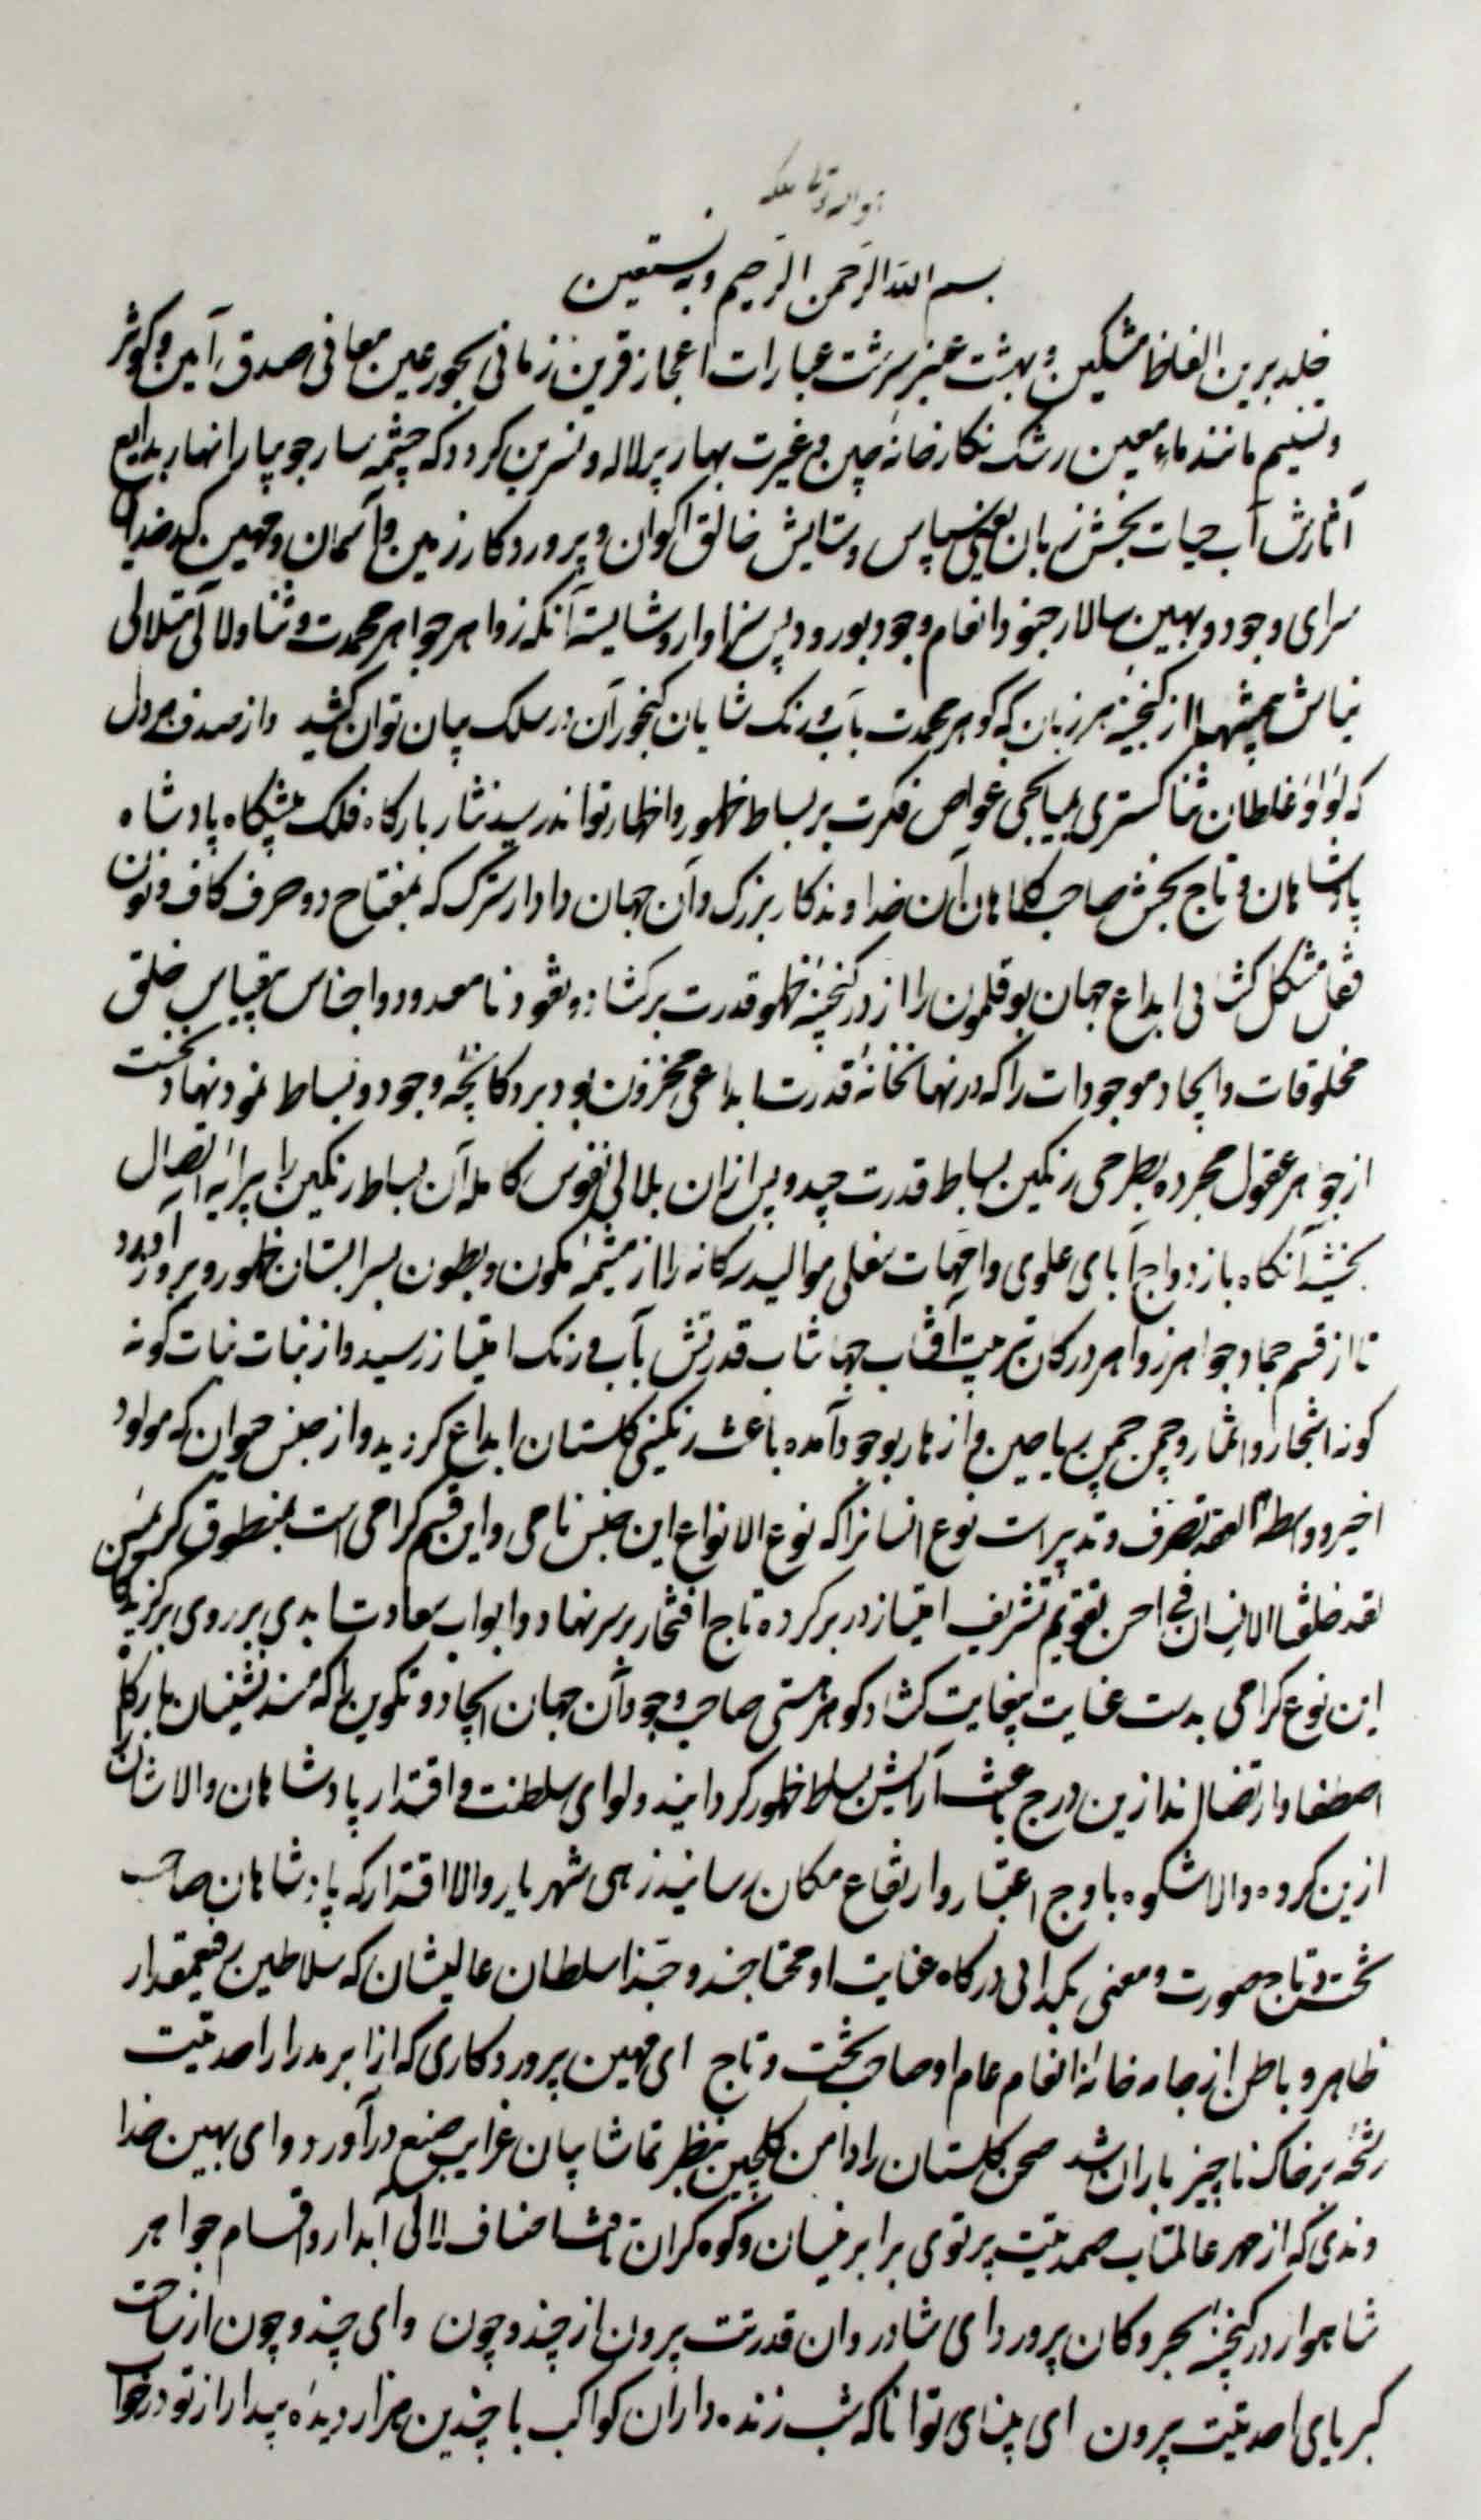 هو الله تعالی شانه
بسم الله الرحمن الرحیم و به نستعین
خلد برین الفاظ مشکین و بهشت عنبر سرشت عبارات اعجاز قرین زمانی بحور عین معانی صدق آیین و کوثر
و تسنیم مانند ماء معین رشک نکارخانه چین و غیرت بهار پر لاله و نسرین کردد که چشمه سار جویبار انهار بدایع
آثارش آب حیات بخش زبان یعنی سپاس و ستایش خالق اکوان و پروردکار زمین و آسمان و مهین کدخدای
سرای وجود و بهین سالار جنود انعام وجود بود و پس سزاوار و شایسته آنکه زواهر جواهر محمدت و ثنا و لآلی متلالی
نیایش بیمنتها از کنجینه هر زبان که کوهر محمدت باب و رنک شایان کنجور آن در سلک بیان توان کشید و از صدف هر دل
که لؤلؤ غلطان ثنا کستری بمیانجی غواص فکرت بر بساط ظهور و اظهار تواند رسید نثار بارکاه فلک پیشکاه پادشاه
پادشاهان و تاج بخش صاحب کلاهان آن خداوندکار بزرک و آن جهان دادار سترک که بمفتاح دو حرف کاف و نون
قفل مشکل کشائی ابداع جهان بوقلمون را از در کنجینه ظهور قدرت برکشاد و نقود نامعدود و اجناس بیقیاس خلق
مخلوقات و ایجاد موجودات را که در نهانخانه قدرت ابداعی مخزون بود بر دکانچه وجود و بساط نمود نهاد نخست
از جواهر عقول مجرده بطرحی رنکین بساط قدرت چید و پس ازان بلالی نفوس کامله آن بساط رنکین را پیرایه اتصال
بخشید آنکاه بازدواج آبای علوی و امهات سفلی موالید سه کانه را از مشیمه کمون و بطون بسرابستان ظهور و بروز آورد
تا از قسم جماد جواهر زواهر در کان تربیت آفتاب جهانتاب قدرتش بآب و رنک امتیاز رسید و از نبات نبات کونه
کونه اشجار و اثمار و چمن چمن ریاحین و ازهار بوجود آمده باعث رنکینی کلستان ابداع کردید و از جنس حیوان که مولود
اخیر و واسطة العقد تصرف و تدبیر است نوع انسانرا که نوع الانواع این جنس نامی و این قسم کرامی است بمنطوق کریمه
لقد خلقنا الانسان فی احسن تقویم تشریف امتیاز در بر کرده تاج افتخار بر سر نهاد و ابواب سعادت ابدی بر روی برکزیدکان
این نوع کرامی بدست عنایت بیغایت کشاد کوهر هستی صاحب وجود آن جهان ایجاد و تکوین را که مسند نشینان بارکاه
اصطفا و ارتضا اند ازین درج باعث آرایش بساط ظهور کردانید و لوای سلطنت و اقتدار پادشاهان والاشان
ازین کروه والا شکوه باوج اعتبار و ارتفاع مکان رسانید زهی شهریار والا اقتدار که پادشاهان صاحب
تخت و تاج صورت و معنی بکدائی درکاه عنایت او محتاجند و حبذا سلطان عالیشان که سلاطین رفیعمقدار
ظاهر و باطن از جامه خانه انعام عام او صاحب تخت و تاج ای مهین پروردکاری که از ابر مدرار احدیتت
رشحه بر خاک ناچیز باران شد صحن کلستان را دامن کلچین بنظر تماشاییان غرایب صنع درآورد و ای بهین خدا
وندی که از مهر عالمتاب صمدیتت پرتوی بر ابر نیسان و کوه کران تا اصناف لالی آبدار و اقسام جواهر
شاهوار در کنجینه بحر و کان پرورد ای شادروان قدرتت بیرون از چند و چون و ای چند و چون از ساحت
کبریای احدیتت بیرون ای بینای توانا که شب زنده داران کواکب با چندین هزار دیده بیدار از تو در خواب